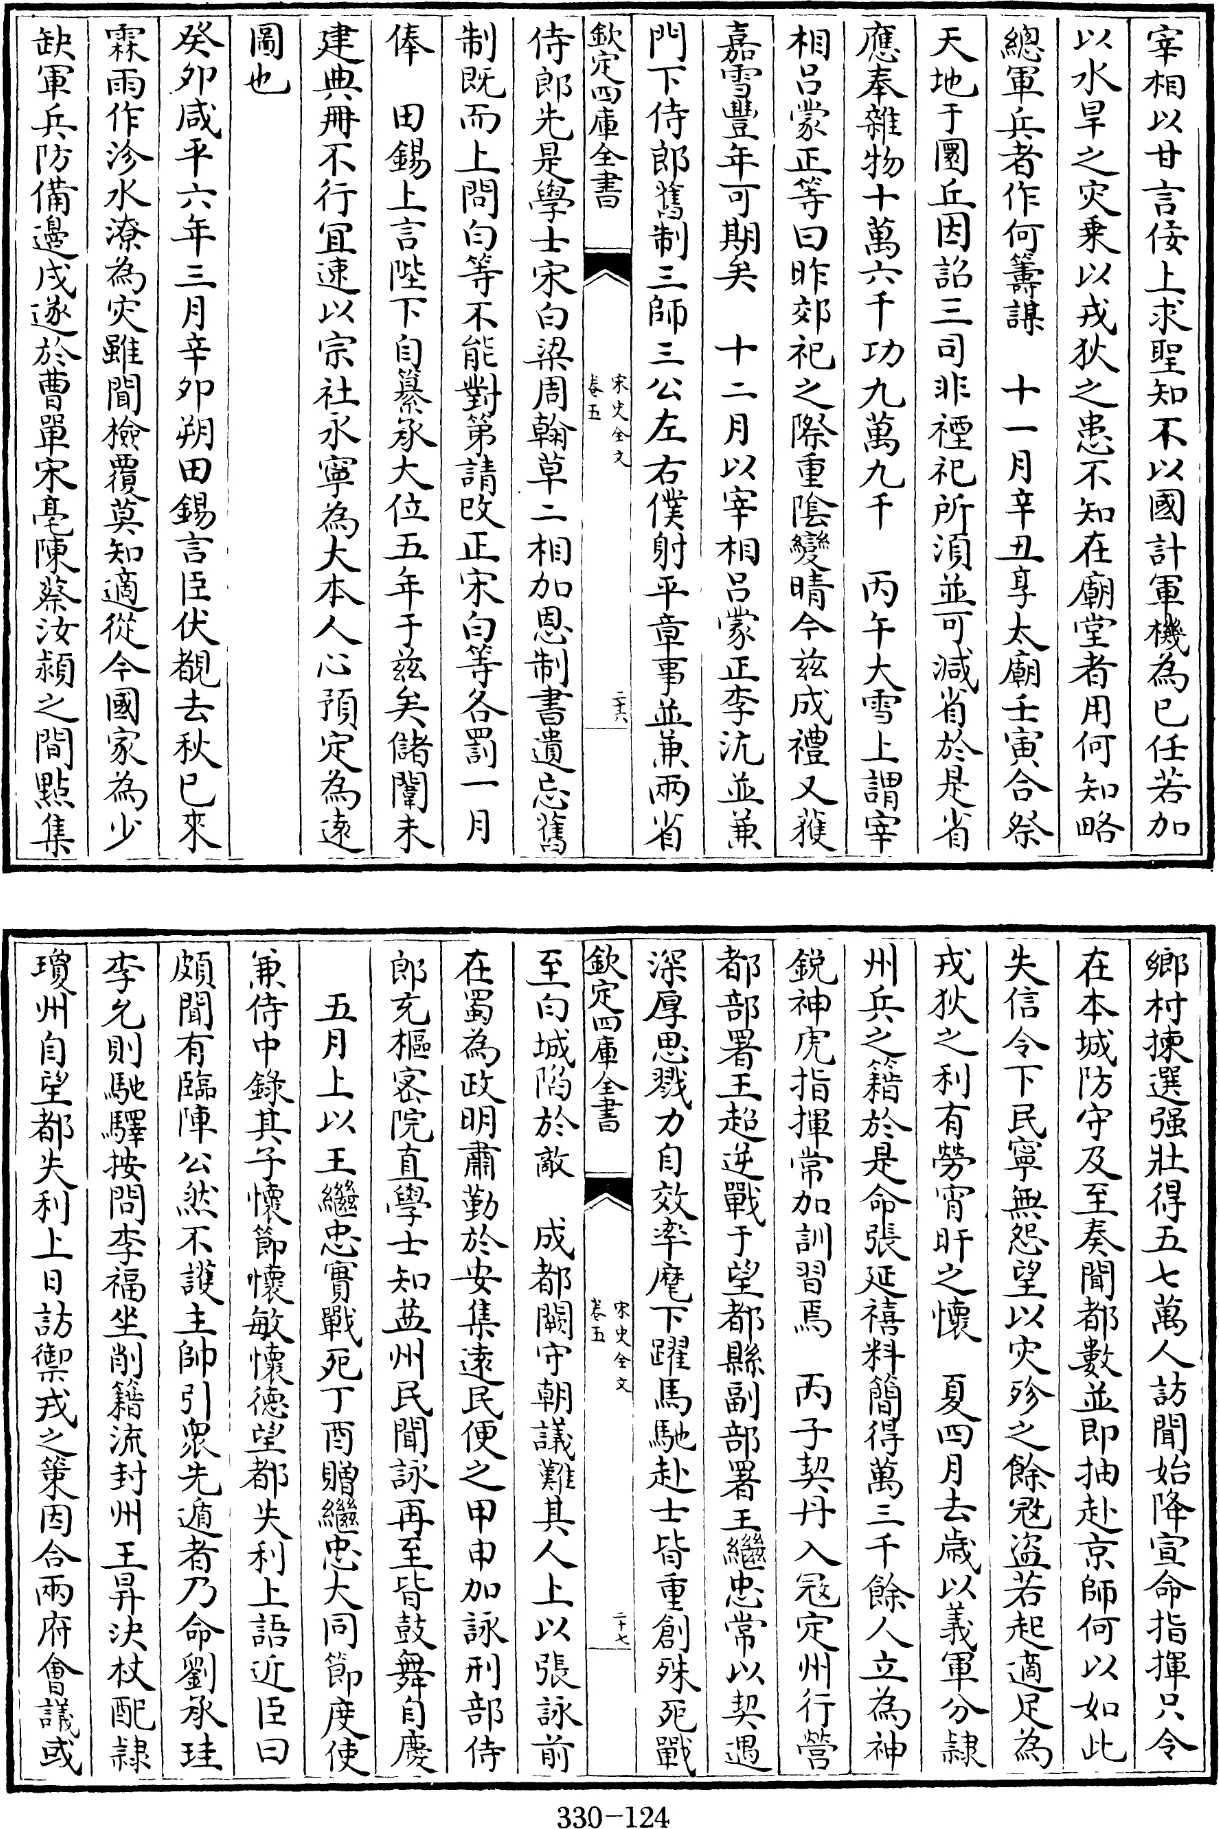 宰相以甘言佞上求聖知不以國計軍機為已任若加
以水旱之灾乗以戎狄之患不知在廟堂者用何知略
總軍兵者作何籌謀　十一月辛丑享太廟壬寅合祭
天地于圜丘因詔三司非禋祀所須並可減省於是省
應奉雜物十萬六千功九萬九千　丙午大雪上謂宰
相吕蒙正等曰昨郊祀之際重陰變晴今兹成禮又獲
嘉雪豐年可期矣　十二月以宰相吕蒙正李沆並兼
門下侍郎舊制三師三公左右僕射平章事並兼兩省
欽定四庫全書
宋史全文
卷五
二十六
侍郎先是學士宋白梁周翰草二相加恩制書遺忘舊
制既而上問白等不能對第請改正宋白等各罰一月
俸　田錫上言陛下自纂承大位五年于兹矣儲闈未
建典冊不行宜速以宗社永寧為大本人心預定為遠
圖也
癸夘咸平六年三月辛夘朔田錫言臣伏覩去秋已來
霖雨作沴水潦為灾雖聞檢覆莫知適從今國家為少
缺軍兵防備邊戍遂於曹單宋亳陳蔡汝潁之間點集
鄉村揀選强壯得五七萬人訪聞始降宣命指揮只令
在本城防守及至奏聞都數並即抽赴京師何以如此
失信令下民寧無怨望以灾沴之餘冦盗若起適足為
戎狄之利有勞宵旰之懷　夏四月去歲以義軍分隷
州兵之籍於是命張延禧料簡得萬三千餘人立為神
鋭神虎指揮常加訓習焉　丙子契丹入冦定州行營
都部署王超逆戰于望都縣副部署王繼忠常以契遇
深厚思戮力自效率麾下躍馬馳赴士皆重創殊死戰
欽定四庫全書
宋史全文
卷五
二十七
至白城陷於敵　成都闕守朝議難其人上以張詠前
在蜀為政明肅勤於安集逺民便之甲申加詠刑部侍
郎充樞密院直學士知益州民聞詠再至皆鼓舞自慶
五月上以王繼忠實戰死丁酉贈繼忠大同節度使
兼侍中錄其子懷節懷敏懷德望都失利上語近臣曰
頗聞有臨陣公然不護主帥引衆先遁者乃命劉承珪
李允則馳驛按問李福坐削籍流封州王昇決杖配隷
瓊州自望都失利上日訪禦戎之策因合兩府會議或
330-124